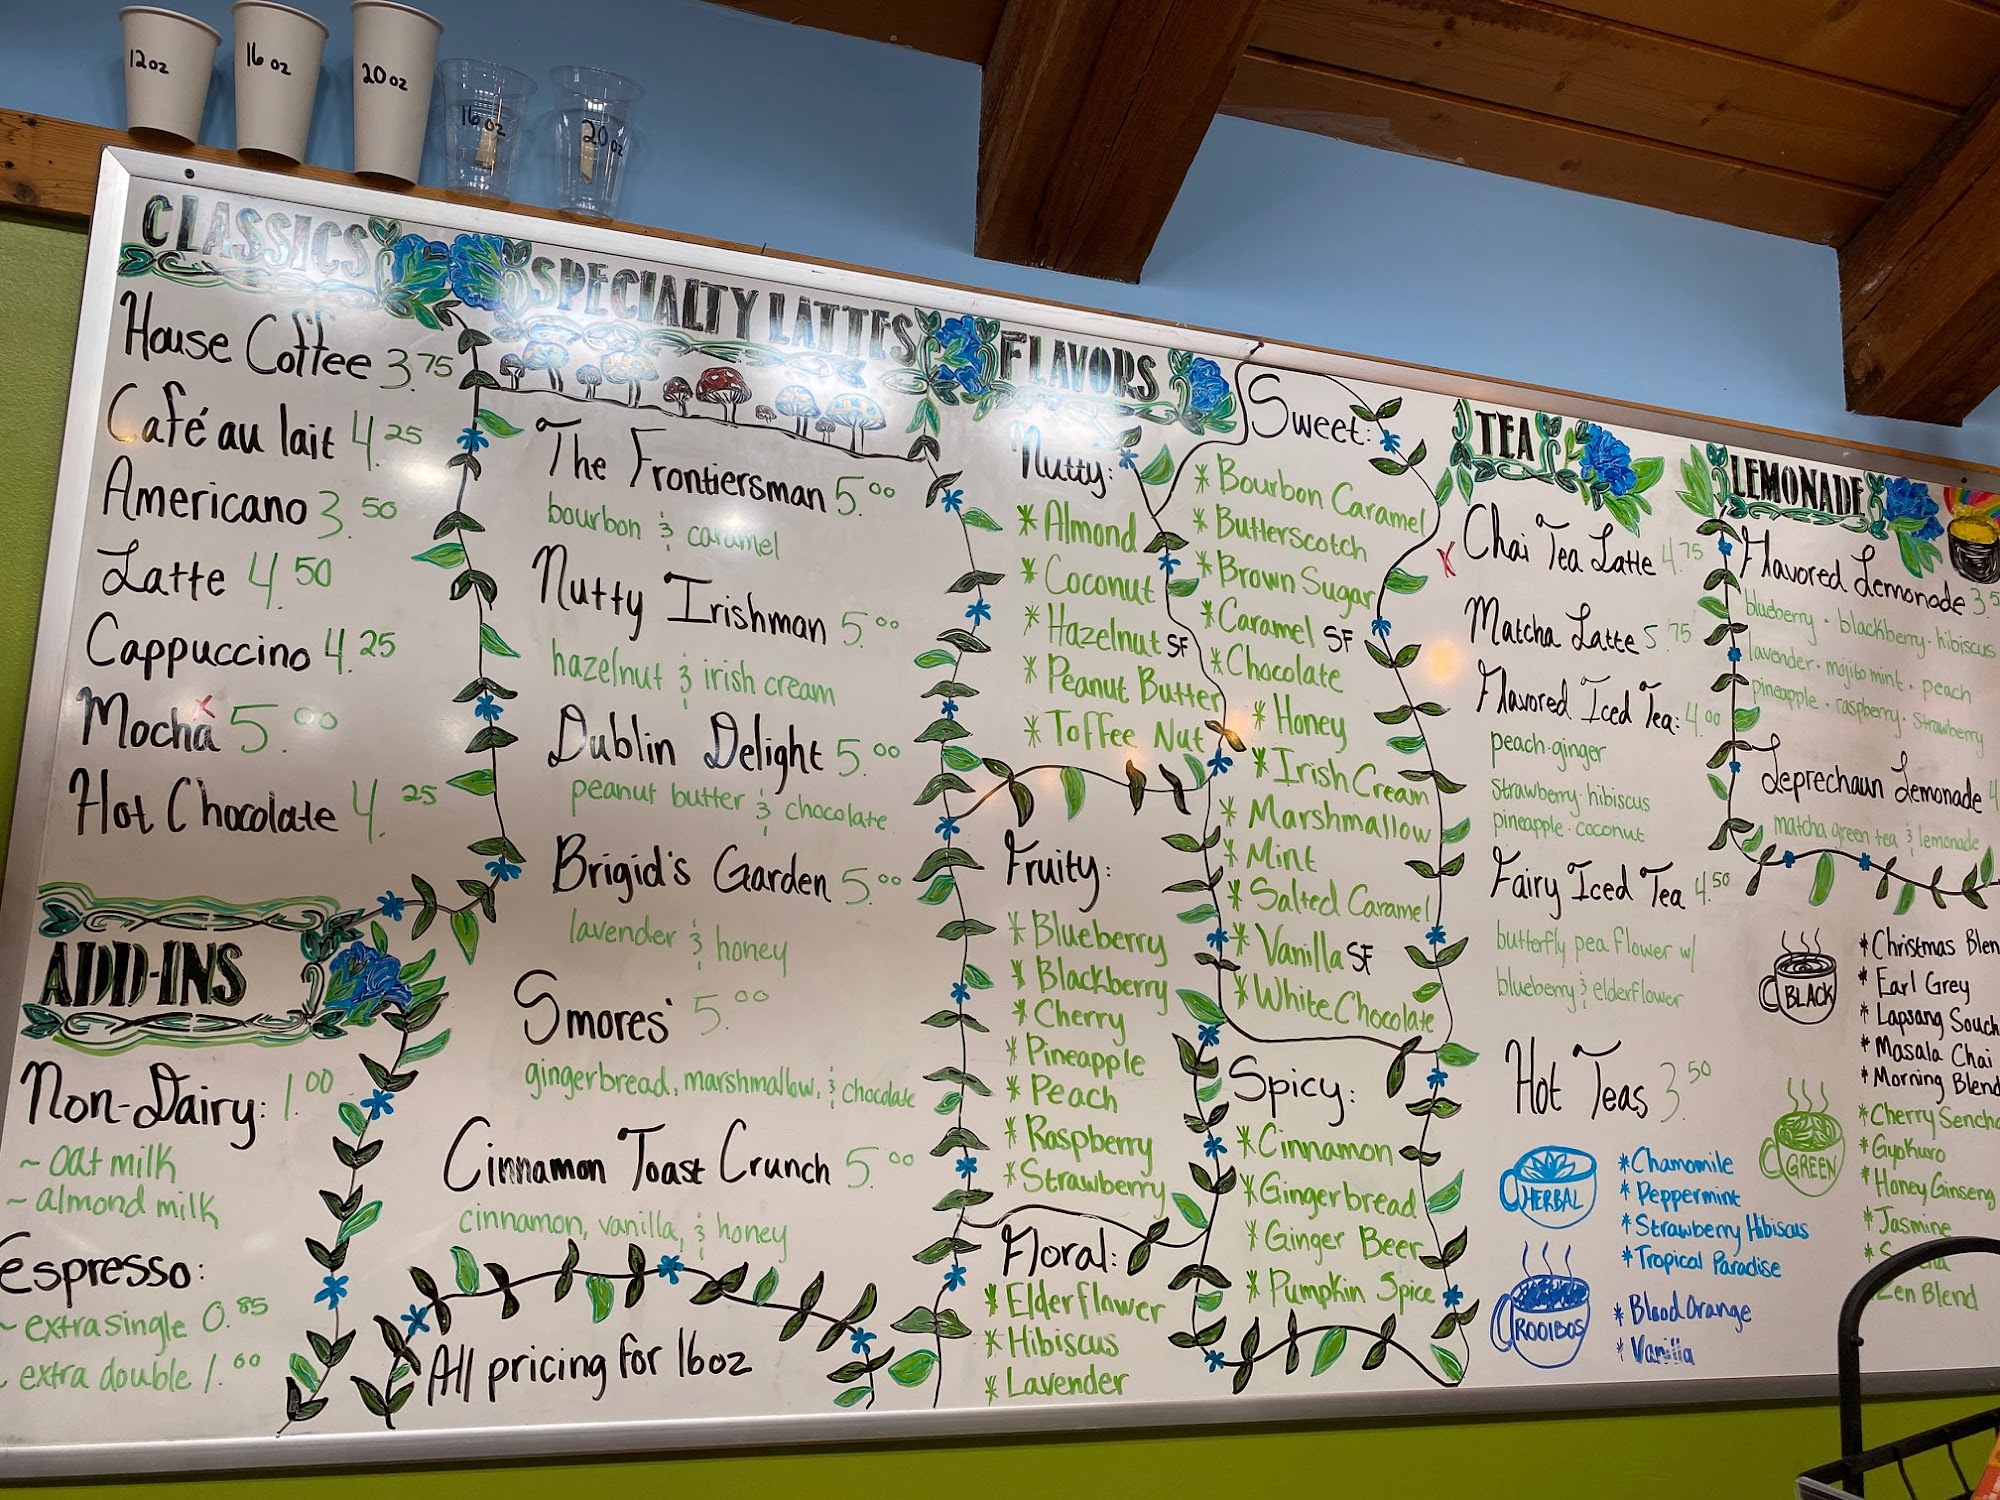 12oz
16oz
20oz
16oz
20oz
CLASSICS
House Coffee 3.75
Café au lait 4.25
Americano 3.50
Latte 4.50
Cappuccino 4.25
Mocha x 5.00
Hot Chocolate 4.25
ADD-INS
Non-Dairy: 1.00
~ oat milk
~ almond milk
espresso:
~ extra single 0.85
extra double 1.00
SPECIALTY LATTES
The Frontiersman 5.00
bourbon & caramel
Nutty Irishman 5.00
hazelnut & irish cream
Dublin Delight 5.00
peanut butter & chocolate
Brigid's Garden 5.00
lavender & honey
Smores' 5.00
gingerbread, marshmallow, & chocolate
Cinnamon Toast Crunch 5.00
cinnamon, vanilla, & honey
All pricing for 16oz
FLAVORS
Nutty:
* Almond
* Coconut
* Hazelnut SF
* Peanut Butter
* Toffee Nut
Fruity:
* Blueberry
* Blackberry
* Cherry
* Pineapple
* Peach
* Raspberry
* Strawberry
Floral:
* Elderflower
* Hibiscus
* Lavender
Sweet:
* Bourbon Caramel
* Butterscotch
* Brown Sugar
* Caramel SF
* Chocolate
* Honey
* Irish Cream
* Marshmallow
* Mint
* Salted Caramel
* Vanilla SF
* White Chocolate
Spicy:
* Cinnamon
* Gingerbread
* Ginger Beer
* Pumpkin Spice
TEA
x Chai Tea Latte 4.75
Matcha Latte 5.75
Flavored Iced Tea: 4.00
peach·ginger
strawberry·hibiscus
pineapple·coconut
Fairy Iced Tea 4.50
butterfly pea flower w/
blueberry & elderflower
Hot Teas 3.50
HERBAL
* Chamomile
* Peppermint
* Strawberry Hibiscus
* Tropical Paradise
ROOIBOS
* Blood Orange
* Vanilla
BLACK
* Christmas Blen
* Earl Grey
* Lapsang Souch
* Masala Chai
* Morning Blend
GREEN
* Cherry Sencha
* Gyokuro
* Honey Ginseng
* Jasmine
Zen Blend
LEMONADE
Flavored Lemonade 3.5
blueberry · blackberry · hibiscus
lavender · mojito mint · peach
pineapple · raspberry · strawberry
Leprechaun Lemonade 4
matcha green tea & lemonade